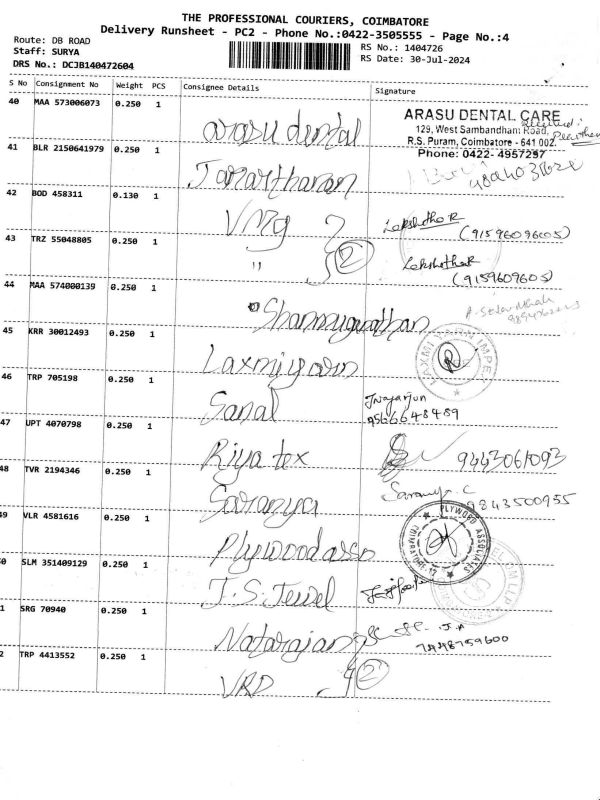 THE PROFESSIONAL COURIERS, COIMBATORE
Delivery Runsheet - PC2 - Phone No.:0422-3505555 - Page No.:4
Route: DB ROAD
Staff: SURYA
DRS No.: DCJB140472604
RS No.: 1404726
RS Date: 30-Jul-2024
S No Consignment No Weight PCS Consignee Details Signature
40 MAA 573006073 0.250 1 arasu dental
ARASU DENTAL CARE
129, West Sambandham Road,
R.S. Puram, Coimbatore - 641 002.
Phone: 0422- 4957297
41 BLR 2150641979 0.250 1 Janarthanan
42 BOD 458311 0.130 1 VMG Lekshitha R
(9159609605)
43 TRZ 55048805 0.250 1 " 2 Lekshitha R
(9159609605)
44 MAA 574000139 0.250 1 Shanmuganathan
45 KRR 30012493 0.250 1 Laxmi yarn
LAXMI YARN IMPEX
46 TRP 705198 0.250 1 Sanal
9566648489
47 UPT 4070798 0.250 1 Riya tex 9443061093
48 TVR 2194346 0.250 1 Saranya Saranya C
9843500955
49 VLR 4581616 0.250 1 Plywood asso
PLYWOOD ASSOCIATES
COIMBATORE
0 SLM 351409129 0.250 1 J.S. Jewel
1 SRG 70940 0.250 1 Natarajan
7448759600
2 TRP 4413552 0.250 1 VRD 2